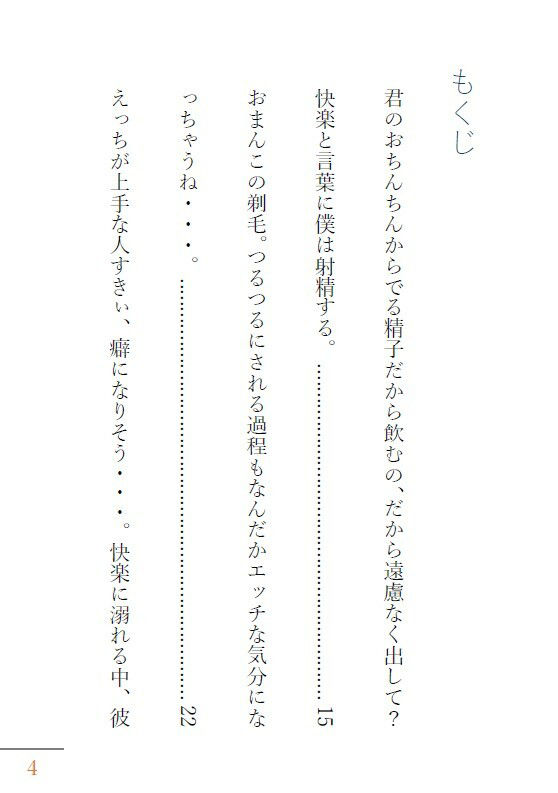 もくじ
君のおちんちんからでる精子だから飲むの、だから遠慮なく出して？
快楽と言葉に僕は射精する。 ................................................ 15
おまんこの剃毛。つるつるにされる過程もなんだかエッチな気分にな
っちゃうね・・・。 ............................................................ 22
えっちが上手な人すきぃ、癖になりそう・・・。快楽に溺れる中、彼
4